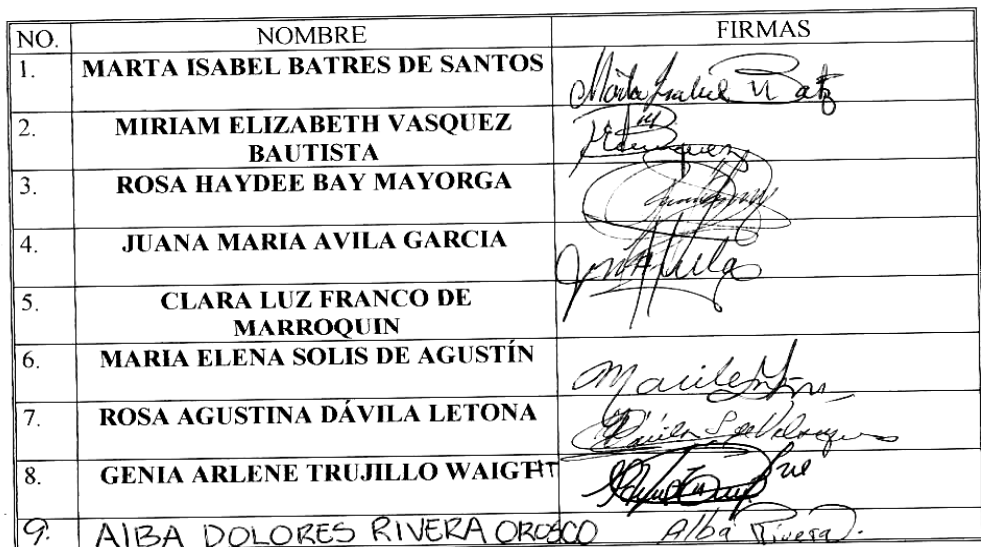 NO. NOMBRE FIRMAS
1. MARTA ISABEL BATRES DE SANTOS
Marta Isabel
2. MIRIAM ELIZABETH VASQUEZ
BAUTISTA
3. ROSA HAYDEE BAY MAYORGA
4. JUANA MARIA AVILA GARCIA
5. CLARA LUZ FRANCO DE
MARROQUIN
6. MARIA ELENA SOLIS DE AGUSTÍN
7. ROSA AGUSTINA DÁVILA LETONA
8. GENIA ARLENE TRUJILLO WAIGTHT
9. AlBA DOLORES RIVERA OROSCO Alba Rivera.